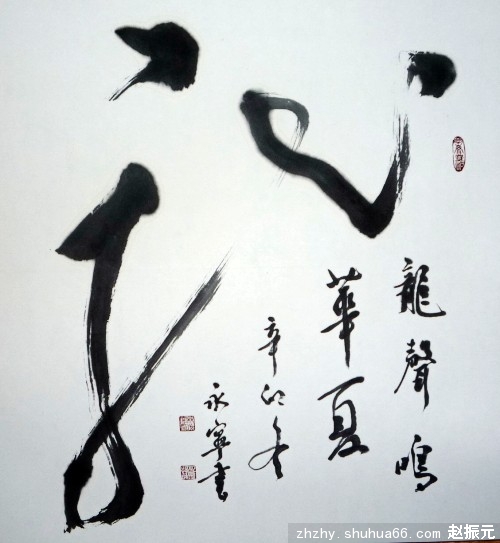 龍聲鳴
華夏
辛卯冬
永寧書
zhzhy.shuhua66.com 赵振元